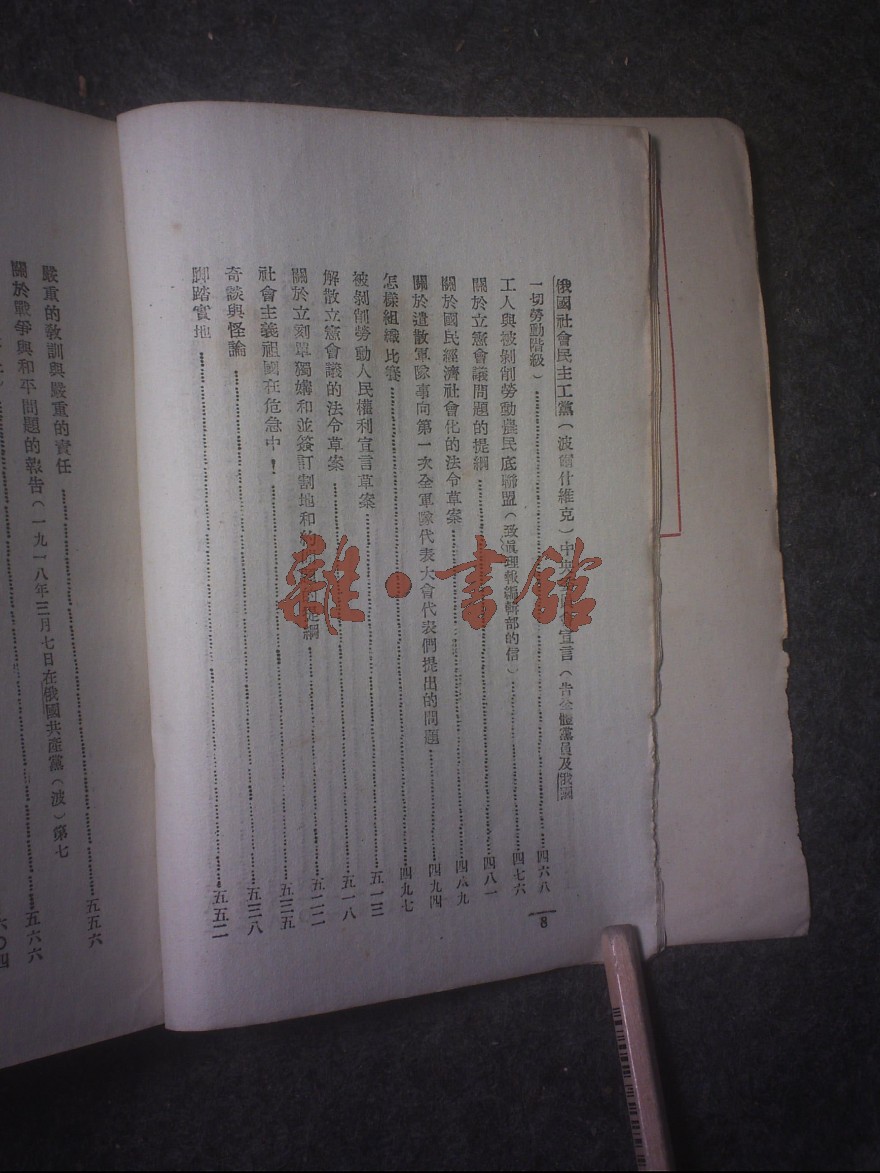 俄國社會民主工黨(波爾什維克)中央 宣言(告全體黨員及俄國
一切勞動階級)……四六八
工人與被剝削勞動農民底聯盟(致真理報編輯部的信)……四七六
關於立憲會議問題的提綱……四八一
關於國民經濟社會化的法令草案……四八九
關於遣散軍隊事向第一次全軍隊代表大會代表們提出的問題……四九四
怎樣組織比賽……四九七
被剝削勞動人民權利宣言草案……五一三
解散立憲會議的法令草案……五一八
關於立刻單獨媾和並簽訂割地和約 提綱……五二二
社會主義祖國在危急中!……五三五
奇談與怪論……五三八
脚踏實地……五五二
8
嚴重的教訓與嚴重的責任……五五六
關於戰爭與和平問題的報告(一九一八年三月七日在俄國共產黨(波)第七
……五六六
六〇四
雜·書館